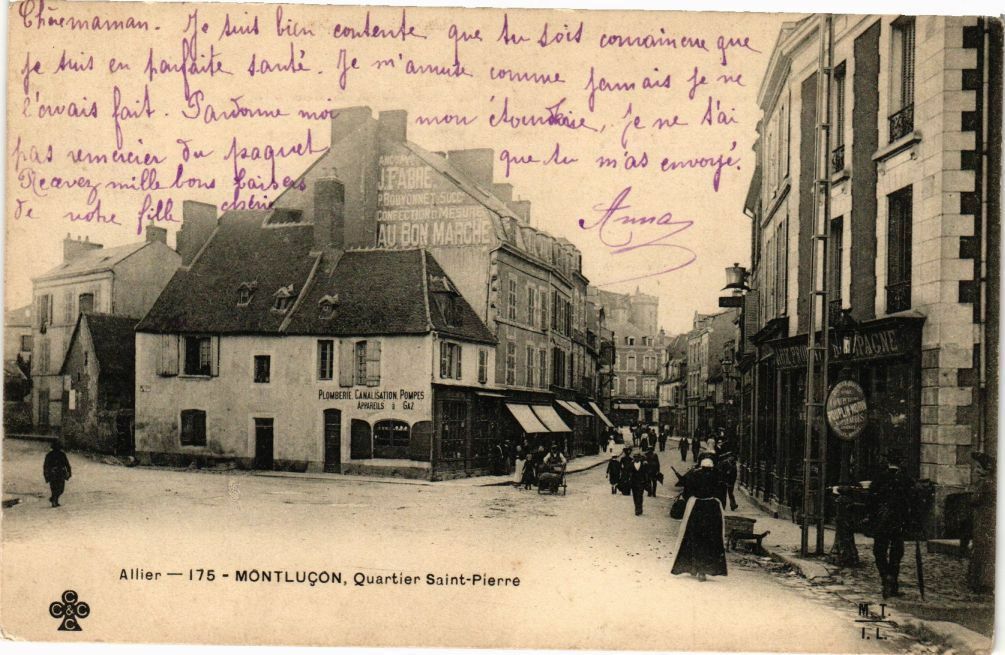 Chère maman. Je suis bien contente que tu sois convaincue que
je suis en parfaite santé. Je m'amuse comme jamais je ne
l'avais fait. Pardonne moi mon étourderie, je ne t'ai
pas remercier du paquet que tu m'as envoyé.
Recevez mille bons baisers
de votre fille chérie
Anna
J. FABRE
PROUYONNET SUCC
CONFECTION & MESURE
AU BON MARCHÉ
PLOMBERIE, CANALISATION, POMPES
APPAREILS À GAZ
Allier — 175 - MONTLUÇON, Quartier Saint-Pierre
C C & C C
M. T.
I. L.